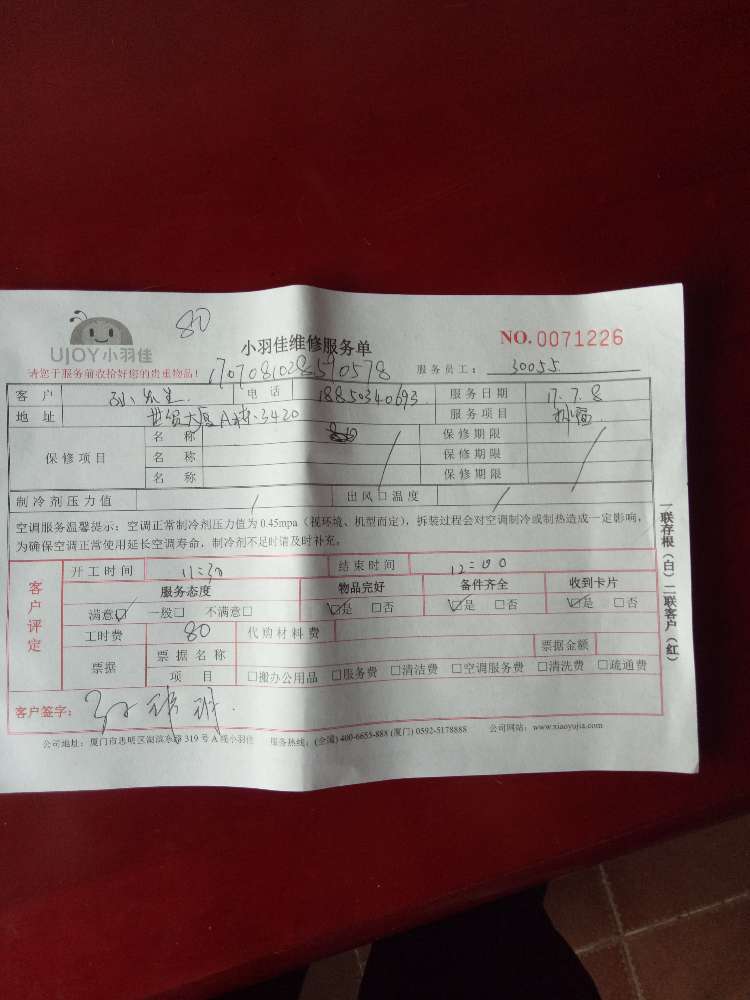 80
UJOY小羽佳
小羽佳维修服务单
NO. 0071226
请您于服务前收拾好您的贵重物品！ 1707081028510578 服务员工： 30055
客户 孙先生 电话 18850340693 服务日期 17.7.8
地址 世贸大厦A栋.3420 服务项目
保修项目 名称 保修期限
名称 保修期限
名称 保修期限
制冷剂压力值 / 出风口温度 /
空调服务温馨提示：空调正常制冷剂压力值为0.45mpa（视环境、机型而定），拆装过程会对空调制冷或制热造成一定影响，
为确保空调正常使用延长空调寿命，制冷剂不足时请及时补充。
客户评定 开工时间 11:30 结束时间 12:00
服务态度 物品完好 备件齐全 收到卡片
满意☑ 一般□ 不满意□ ☑是 □否 ☑是 □否 ☑是 □否
工时费 80 代购材料费
票据 票据名称 票据金额
项目 □搬办公用品 □服务费 □清洁费 □空调服务费 □清洗费 □疏通费
客户签字：
公司地址：厦门市思明区湖滨东路319号A栋小羽佳 服务热线：(全国) 400-6655-888 (厦门) 0592-5178888 公司网站：www.xiaoyujia.com
一联存根（白）二联客户（红）